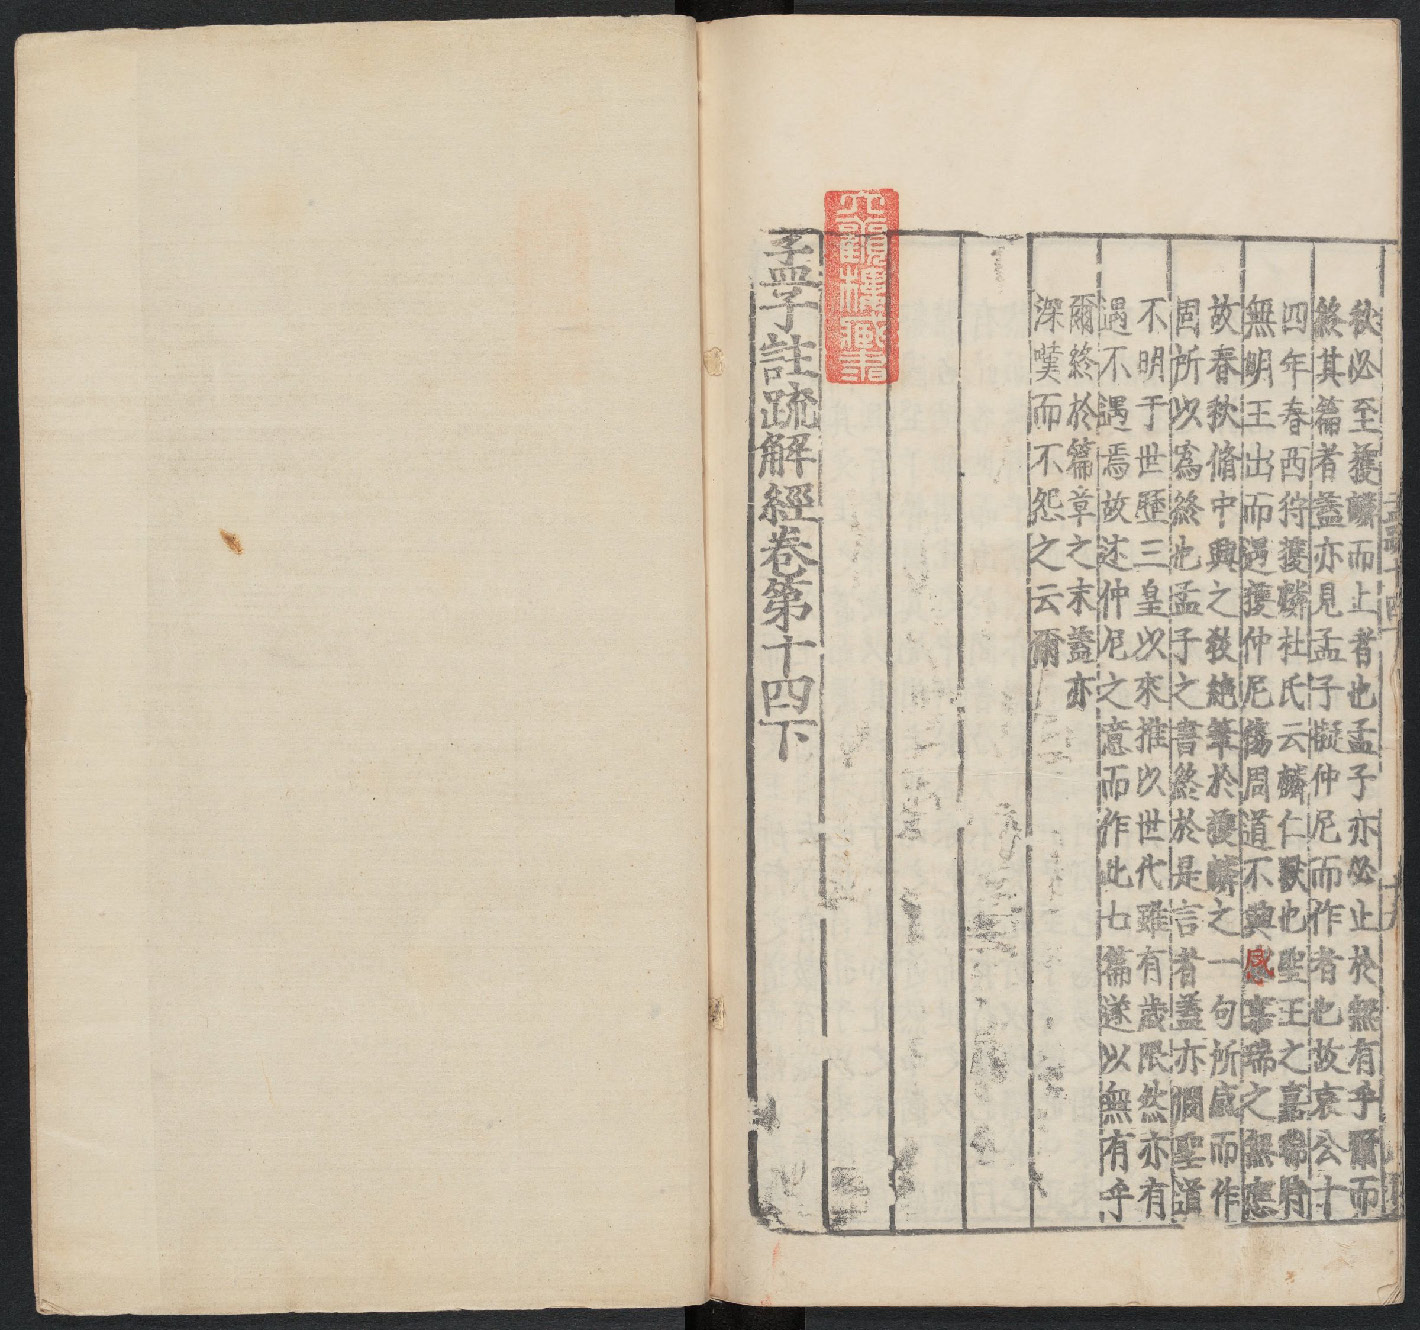 秋必至獲麟而止者也孟子亦必止於無有乎爾而
終其篇者蓋亦見孟子擬仲尼而作者也故哀公十
四年春西狩獲麟杜氏云麟仁獸也聖王之嘉瑞時
無明王出而遇獲仲尼傷周道不興感嘉瑞之無應
故春秋脩中興之教絶筆於獲麟之一句所感而作
固所以為終也孟子之書終於是言者蓋亦憫聖道
不明于世歷三皇以來推以世代雖有歲限然亦有
遇不遇焉故述仲尼之意而作此七篇遂以無有乎
爾終於篇章之末蓋亦
深嘆而不怨之云爾
孟子註疏解經卷第十四下